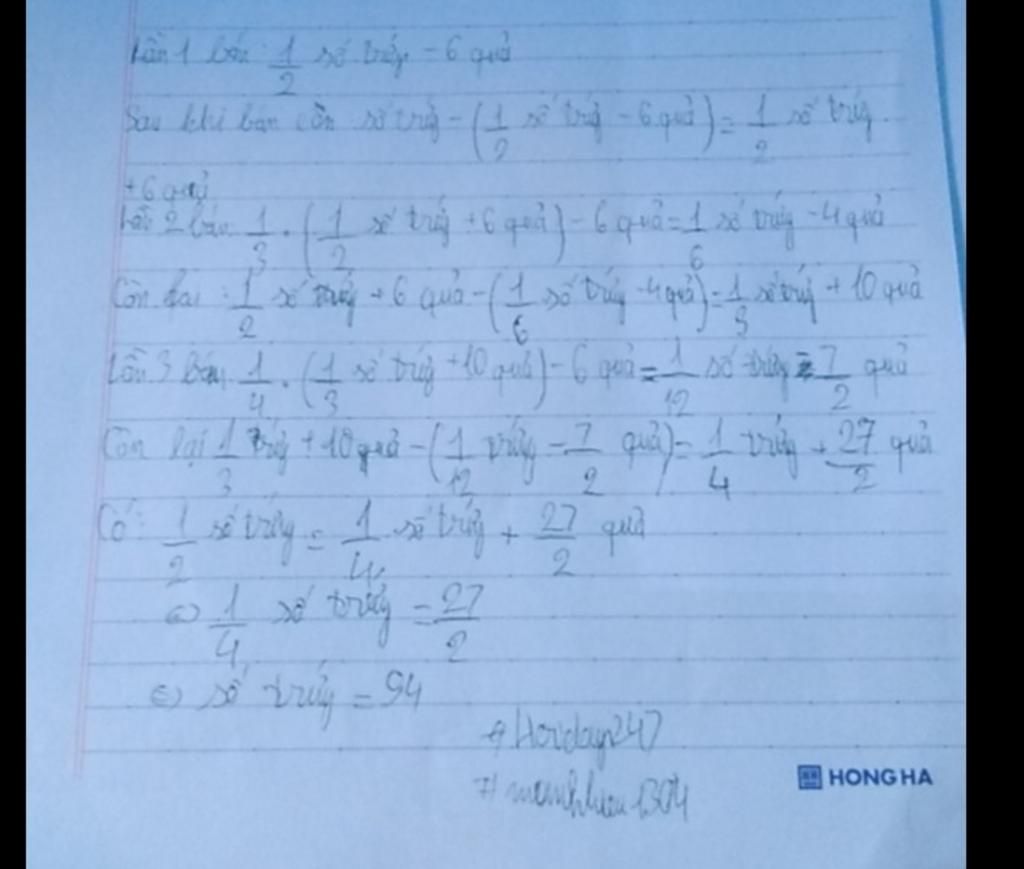 Lần 1 bán: 1/2 số trứng - 6 quả
Sau khi bán còn số trứng - (1/2 số trứng - 6 quả) = 1/2 số trứng
+ 6 quả
Lần 2 bán: 1/3 . (1/2 số trứng + 6 quả) - 6 quả = 1/6 số trứng - 4 quả
Còn lại: 1/2 số trứng + 6 quả - (1/6 số trứng - 4 quả) = 1/3 số trứng + 10 quả
Lần 3 bán 1/4 . (1/3 số trứng + 10 quả) - 6 quả = 1/12 số trứng - 7/2 quả
Còn lại 1/3 trứng + 10 quả - (1/12 trứng - 7/2 quả) = 1/4 trứng + 27/2 quả
Có: 1/2 số trứng = 1/4 số trứng + 27/2 quả
⇔ 1/4 số trứng = 27/2
⇔ số trứng = 54
# Hoidap247
HONG HA